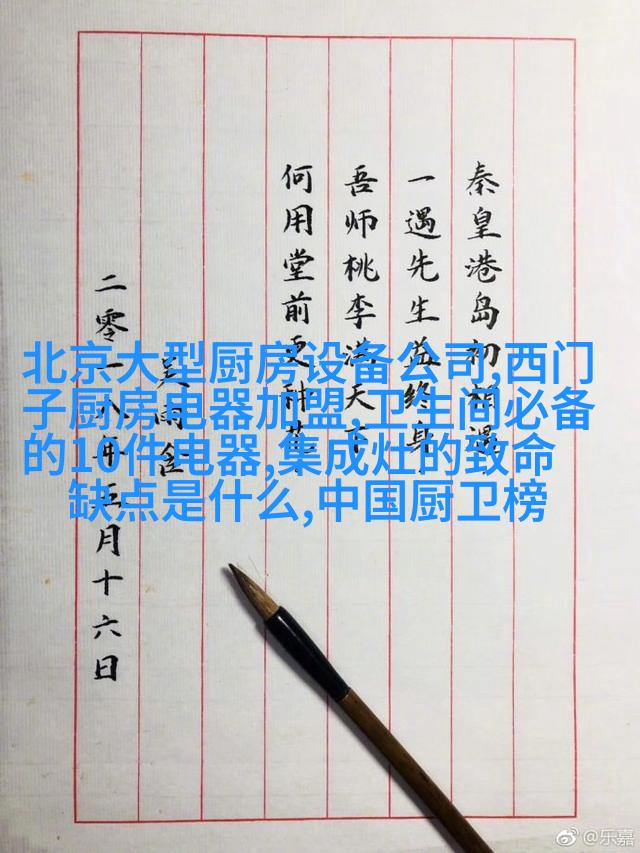 秦皇港岛初相遇
一遇先生益终身
吾师桃李满天下
何用堂前更种花
吴雨
二零一八年五月十六日
北京大型厨房设备公司,西门
子厨房电器加盟,卫生间必备
的10件电器,集成灶的致命
缺点是什么,中国厨卫榜
@乐嘉